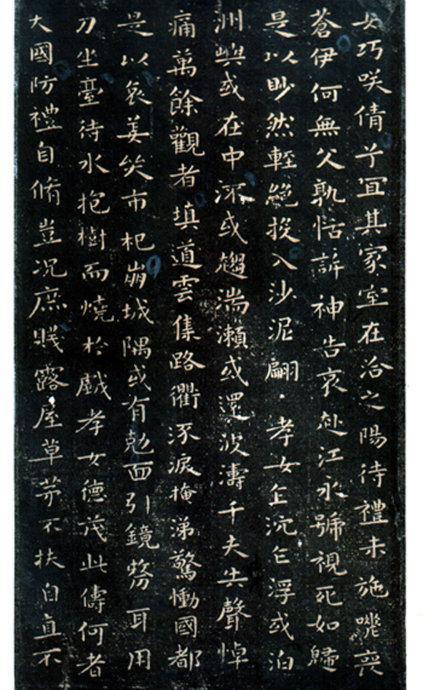 女巧咲倩兮冝其家室在洽之陽待禮未施嗟喪
蒼伊何無父孰怙訴神告哀赴江永號視死如歸
是以眇然輕絕投入沙泥翩〻孝女乍沉乍浮或泊
洲嶼或在中流或趨湍瀨或還波濤千夫失聲悼
痛萬餘觀者填道雲集路衢流淚掩涕驚慟國都
是以哀姜哭市杞崩城隅或有尅面引鏡剺耳用
刀坐臺待水抱樹而燒於戲孝女德茂此儔何者
大國防禮自脩豈況庶賤露屋草茅不扶自直不